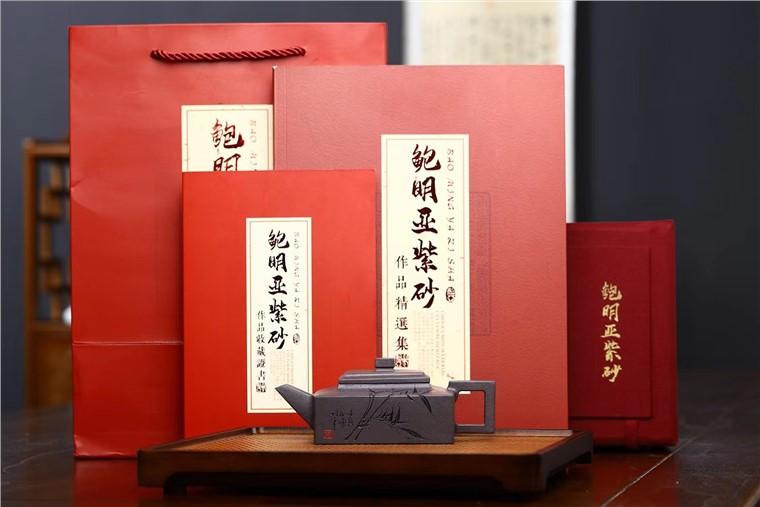 鲍明
鲍明亚紫砂
BAO MING YA ZI SHA
作品精選集
鲍明亚紫砂
BAO MING YA ZI SHA
作品收藏證書
鲍明亚紫砂